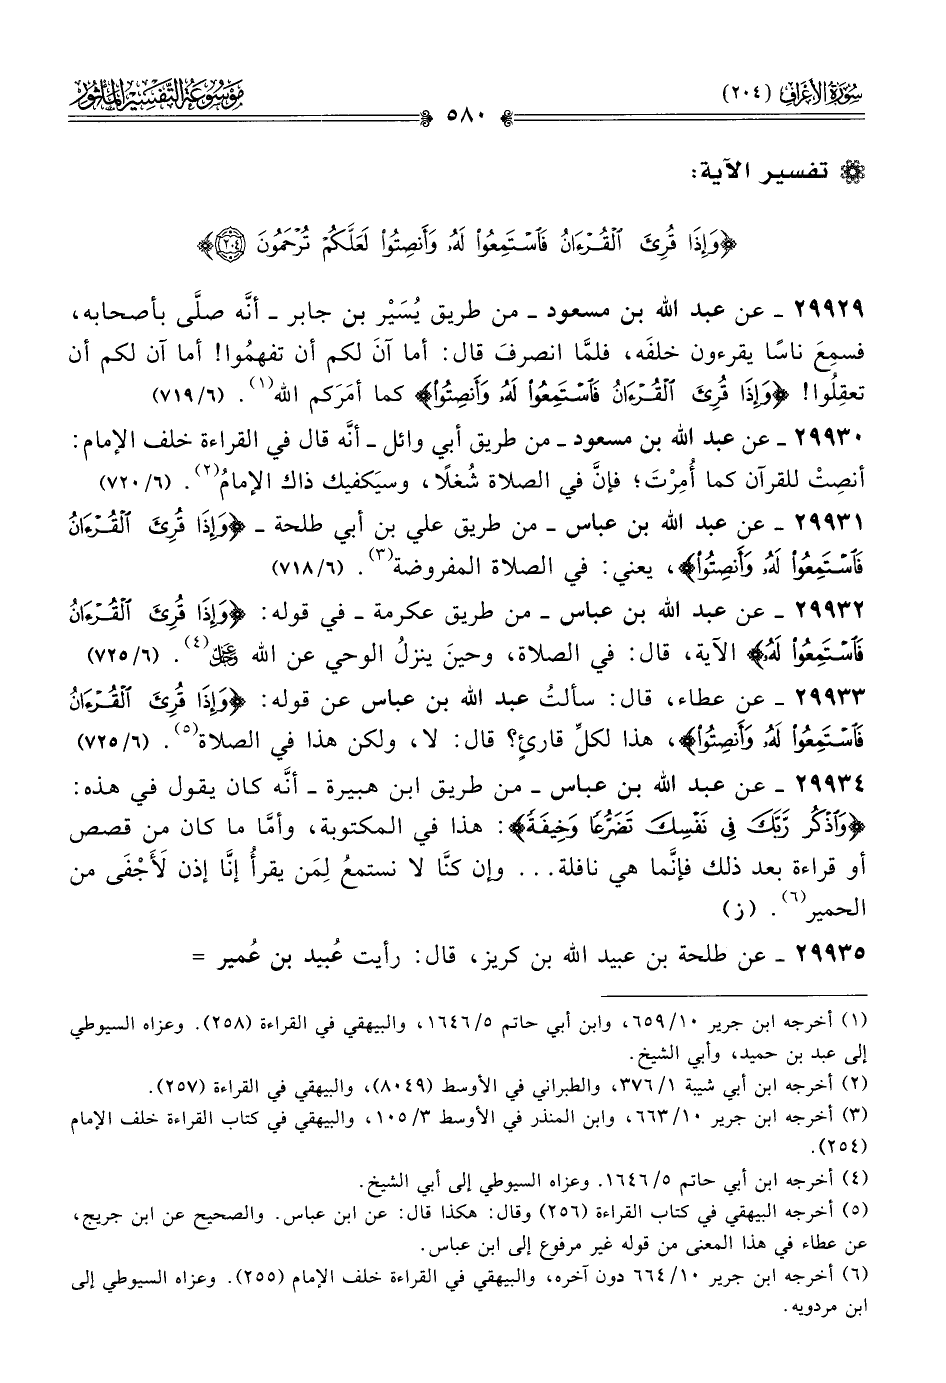 سُورَةُ الأَعْرَافِ (٢٠٤)
٥٨٠
مَوْسُوعَةُ التَّفْسِيرِ المَأْثُورِ
تفسير الآية:
﴿وَإِذَا قُرِئَ ٱلْقُرْءَانُ فَٱسْتَمِعُوا۟ لَهُۥ وَأَنصِتُوا۟ لَعَلَّكُمْ تُرْحَمُونَ ٢٠٤﴾
٢٩٩٢٩ ـ عن عبد الله بن مسعود ـ من طريق يُسَيْر بن جابر ـ أنَّه صلَّى بأصحابه،
فسمِعَ ناسًا يقرءون خلفَه، فلمَّا انصرفَ قال: أما آنَ لكم أن تفهمُوا! أما آن لكم أن
تعقِلُوا! ﴿وَإِذَا قُرِئَ ٱلْقُرْءَانُ فَٱسْتَمِعُوا۟ لَهُۥ وَأَنصِتُوا۟﴾ كما أمَرَكم الله(١). (٧١٩/٦)
٢٩٩٣٠ ـ عن عبد الله بن مسعود ـ من طريق أبي وائل ـ أنَّه قال في القراءة خلف الإمام:
أنصِتْ للقرآن كما أُمِرْتَ؛ فإنَّ في الصلاة شُغلًا، وسيَكفيك ذاك الإمامُ(٢). (٧٢٠/٦)
٢٩٩٣١ ـ عن عبد الله بن عباس ـ من طريق علي بن أبي طلحة ـ ﴿وَإِذَا قُرِئَ ٱلْقُرْءَانُ
فَٱسْتَمِعُوا۟ لَهُۥ وَأَنصِتُوا۟﴾، يعني: في الصلاة المفروضة(٣). (٧١٨/٦)
٢٩٩٣٢ ـ عن عبد الله بن عباس ـ من طريق عكرمة ـ في قوله: ﴿وَإِذَا قُرِئَ ٱلْقُرْءَانُ
فَٱسْتَمِعُوا۟ لَهُۥ﴾ الآية، قال: في الصلاة، وحينَ ينزلُ الوحي عن الله ﷻ(٤). (٧٢٥/٦)
٢٩٩٣٣ ـ عن عطاء، قال: سألتُ عبد الله بن عباس عن قوله: ﴿وَإِذَا قُرِئَ ٱلْقُرْءَانُ
فَٱسْتَمِعُوا۟ لَهُۥ وَأَنصِتُوا۟﴾، هذا لكلِّ قارئٍ؟ قال: لا، ولكن هذا في الصلاة(٥). (٧٢٥/٦)
٢٩٩٣٤ ـ عن عبد الله بن عباس ـ من طريق ابن هبيرة ـ أنَّه كان يقول في هذه:
﴿وَٱذْكُر رَّبَّكَ فِى نَفْسِكَ تَضَرُّعًا وَخِيفَةً﴾: هذا في المكتوبة، وأمَّا ما كان من قصص
أو قراءة بعد ذلك فإنَّما هي نافلة... وإن كنَّا لا نستمعُ لِمَن يقرأُ إنَّا إذن لَأَجْفَى من
الحمير(٦). (ز)
٢٩٩٣٥ ـ عن طلحة بن عبيد الله بن كريز، قال: رأيت عُبيد بن عُمير =
(١) أخرجه ابن جرير ٦٥٩/١٠، وابن أبي حاتم ١٦٤٦/٥، والبيهقي في القراءة (٢٥٨). وعزاه السيوطي
إلى عبد بن حميد، وأبي الشيخ.
(٢) أخرجه ابن أبي شيبة ٣٧٦/١، والطبراني في الأوسط (٨٠٤٩)، والبيهقي في القراءة (٢٥٧).
(٣) أخرجه ابن جرير ٦٦٣/١٠، وابن المنذر في الأوسط ١٠٥/٣، والبيهقي في كتاب القراءة خلف الإمام
(٢٥٤).
(٤) أخرجه ابن أبي حاتم ١٦٤٦/٥. وعزاه السيوطي إلى أبي الشيخ.
(٥) أخرجه البيهقي في كتاب القراءة (٢٥٦) وقال: هكذا قال: عن ابن عباس. والصحيح عن ابن جريج،
عن عطاء في هذا المعنى من قوله غير مرفوع إلى ابن عباس.
(٦) أخرجه ابن جرير ٦٦٤/١٠ دون آخره، والبيهقي في القراءة خلف الإمام (٢٥٥). وعزاه السيوطي إلى
ابن مردويه.